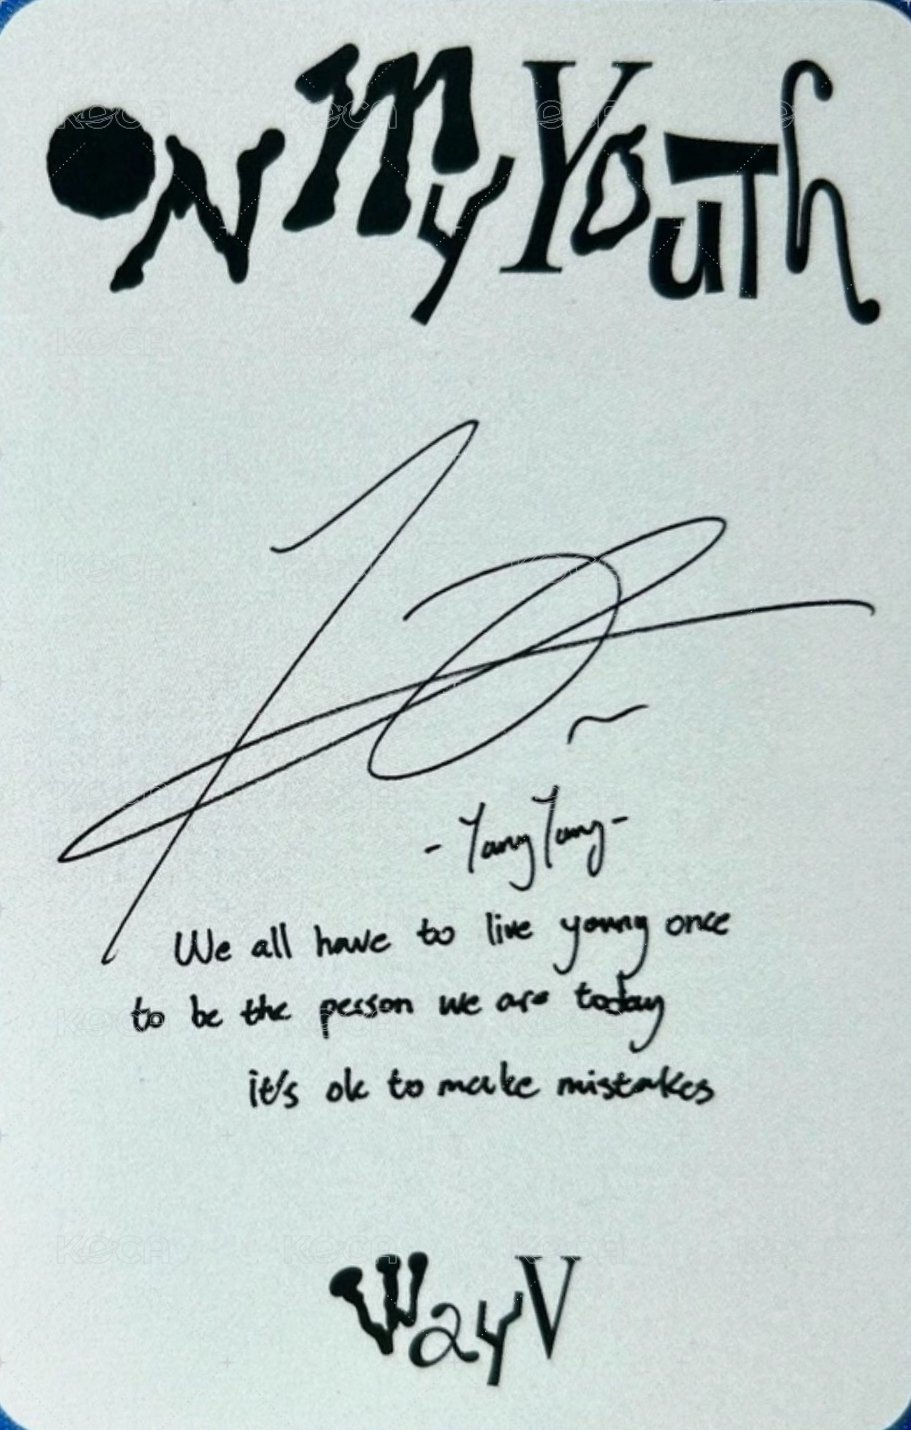 ON MY YOUTH
- YangYang -
We all have to live young once
to be the person we are today
it's ok to make mistakes
WayV
KOCA